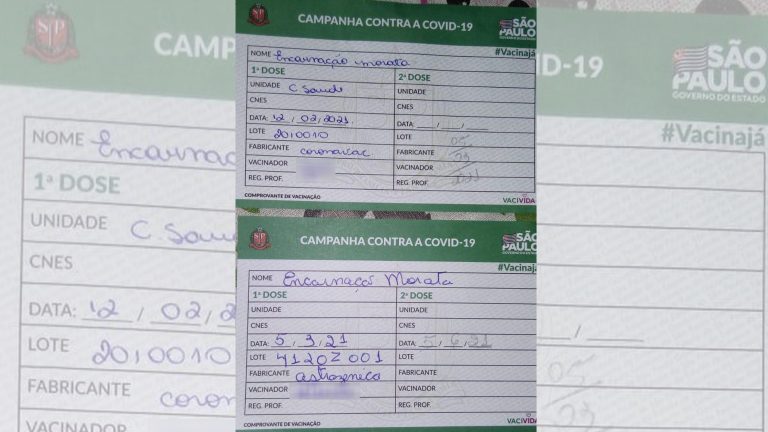 CAMPANHA CONTRA A COVID-19
SÃO PAULO
GOVERNO DO ESTADO
#Vacinajá
NOME Encarnação morata
1ª DOSE 2ª DOSE
UNIDADE C Saude UNIDADE
CNES CNES
DATA: 12 / 02 / 2021 DATA: __/__/__
LOTE 2010010 LOTE 05
FABRICANTE coronavac FABRICANTE
VACINADOR VACINADOR
REG. PROF. REG. PROF.
COMPROVANTE DE VACINAÇÃO VACIVIDA
CAMPANHA CONTRA A COVID-19
SÃO PAULO
GOVERNO DO ESTADO
#Vacinajá
NOME Encarnaçaõ Morata
1ª DOSE 2ª DOSE
UNIDADE UNIDADE
CNES CNES
DATA: 5 / 3 / 21 DATA: 5 / 6 / 21
LOTE 4120Z001 LOTE
FABRICANTE astrozeneca FABRICANTE
VACINADOR VACINADOR
REG. PROF. REG. PROF.
COMPROVANTE DE VACINAÇÃO VACIVIDA
CAMP
D-19
SÃO PAULO
GOVERNO DO ESTADO
#Vacinajá
NOME Encarnaç
1ª DOSE
UNIDADE C Saud
CNES
DATA: 12 / 02 / 2
LOTE 2010010
FABRICANTE coron
VACINADOR
05